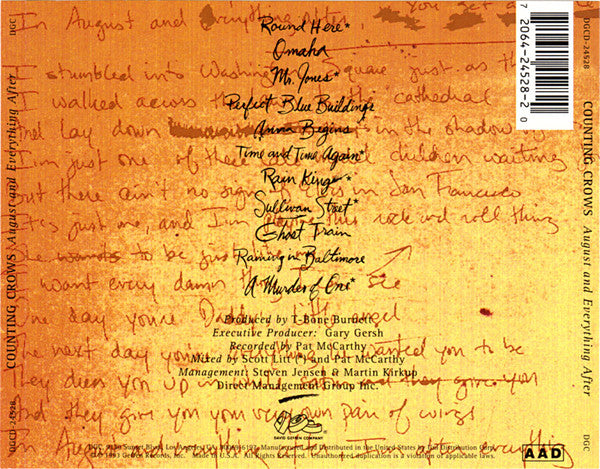 DGC
DGCD-24528
COUNTING CROWS August and Everything After
In August and everything after
You get a
I stumbled into Washington Square just as the
I walked across the to the cathedral
And lay down in the shadow
I'm just one of these children waiting
but there ain't no sign of in San Francisco
It's just me, and I'm this rock and roll thing
to be just
I want every damn thing I see
One day you're angel
The next day you're wanted you to be
They dress you up in and they give you
and they give you your very own pair of wings
In August and everything
Round Here*
Omaha
Mr. Jones*
Perfect Blue Buildings
Anna Begins
Time and Time Again*
Rain King*
Sullivan Street*
Ghost Train
Raining in Baltimore
A Murder of One*
Produced by T-Bone Burnett
Executive Producer: Gary Gersh
Recorded by Pat McCarthy
Mixed by Scott Litt (*) and Pat McCarthy
Management: Steven Jensen & Martin Kirkup
Direct Management Group Inc.
DAVID GEFFEN COMPANY
DGC, 9130 Sunset Blvd. Los Angeles, CA 90069-6197. Manufactured and Distributed in the United States by Uni Distribution Corp.
1993 Geffen Records, Inc. Made in U.S.A. All Rights Reserved. Unauthorized duplication is a violation of applicable laws.
AAD
7 20642-4528-2 0
DGCD-24528
COUNTING CROWS August and Everything After
DGC